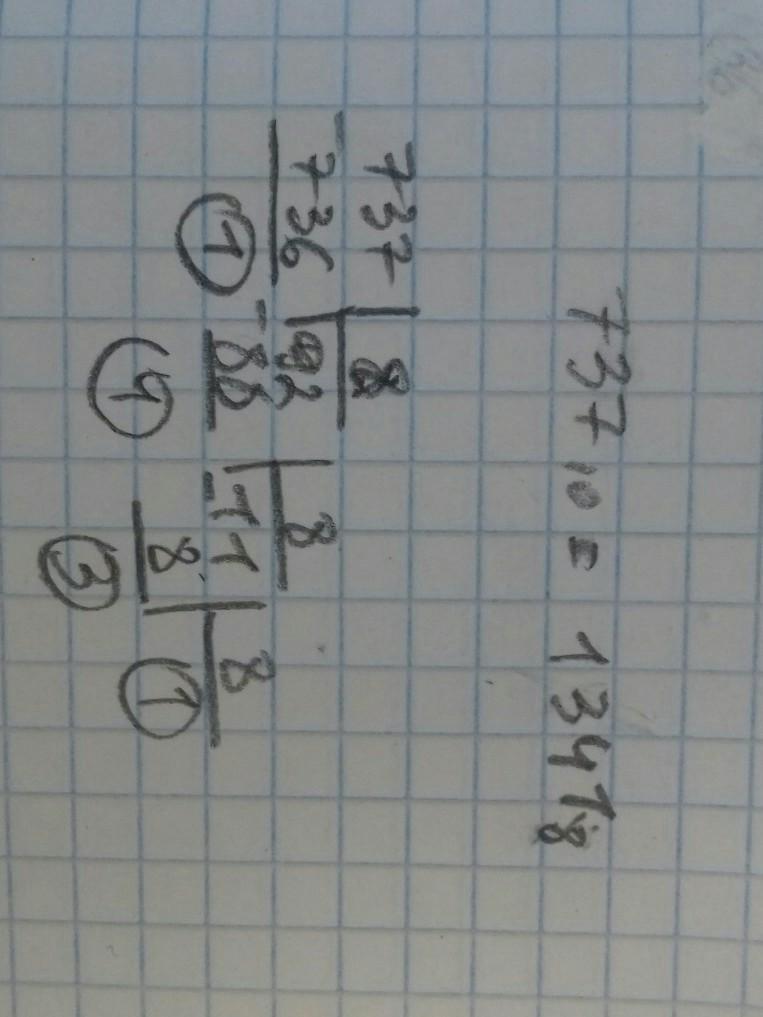 737₁₀ = 1341₈
737 | 8
-736 | 92 | 8
1 -88 | 11 | 8
4 -8 | 1
3